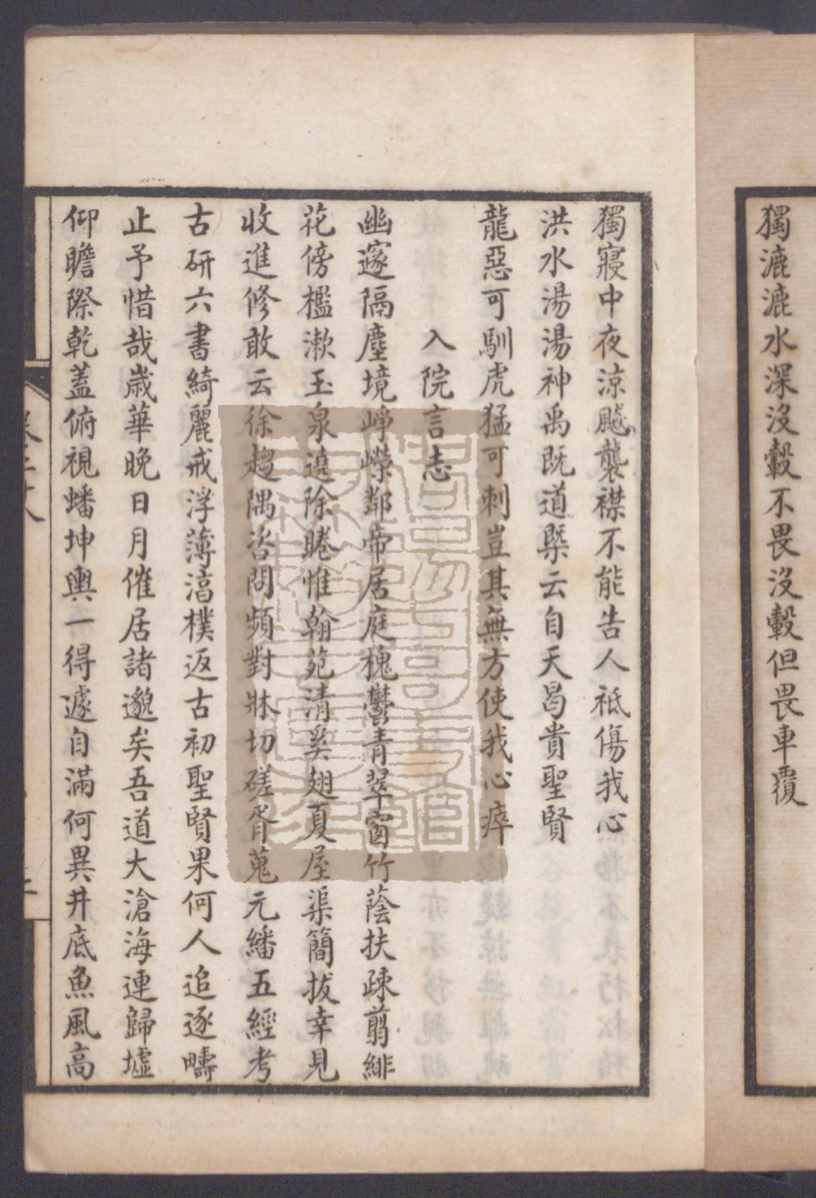 獨漉漉水深沒轂不畏沒轂但畏車覆
獨寢中夜涼飈襲襟不能告人祗傷我心
洪水湯湯神禹既道槩云自天曷貴聖賢
龍惡可馴虎猛可刺豈其無方使我心痗
入院言志
幽邃隔塵境崢嶸鄰帝居庭槐鬱青翠窗竹蔭扶疎翦緋
花傍檻漱玉泉遶除睠惟翰苑清奚翅夏屋渠簡拔幸見
收進修敢云徐趨隅咨問頻對牀切磋胥蒐元繙五經考
古研六書綺麗戒浮薄湻樸返古初聖賢果何人追逐疇
止予惜哉歲華晚日月催居諸邈矣吾道大滄海連歸墟
仰瞻際乾蓋俯視蟠坤輿一得遽自滿何異井底魚風高